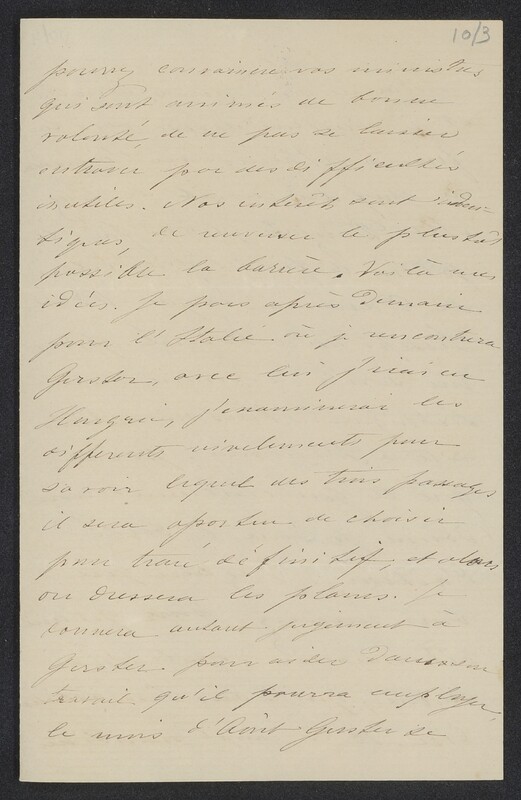 10/3
pourrez convaincre vos ministres
qui sont animés de bonne
volonté, de ne pas se laisser
entraver par des difficultés
inutiles. Nos intérêts sont iden-
tiques, de renverser le plustôt
possible la barrière. Voità mes
idées. Je pars après demain
pour l'Italie où je rencontrera
Gerster, avec lui j'irai en
Hongrie, j'examinerai les
differents nivelements pour
savoir lequel des trois passages
il sera oportun de choisir
pour tracé définitif, et alors
on dressera les plans. Je
donnera autant à
Gerster pour aider dans son
travail qu'il pourra employer
le mois d'Août Gerster se